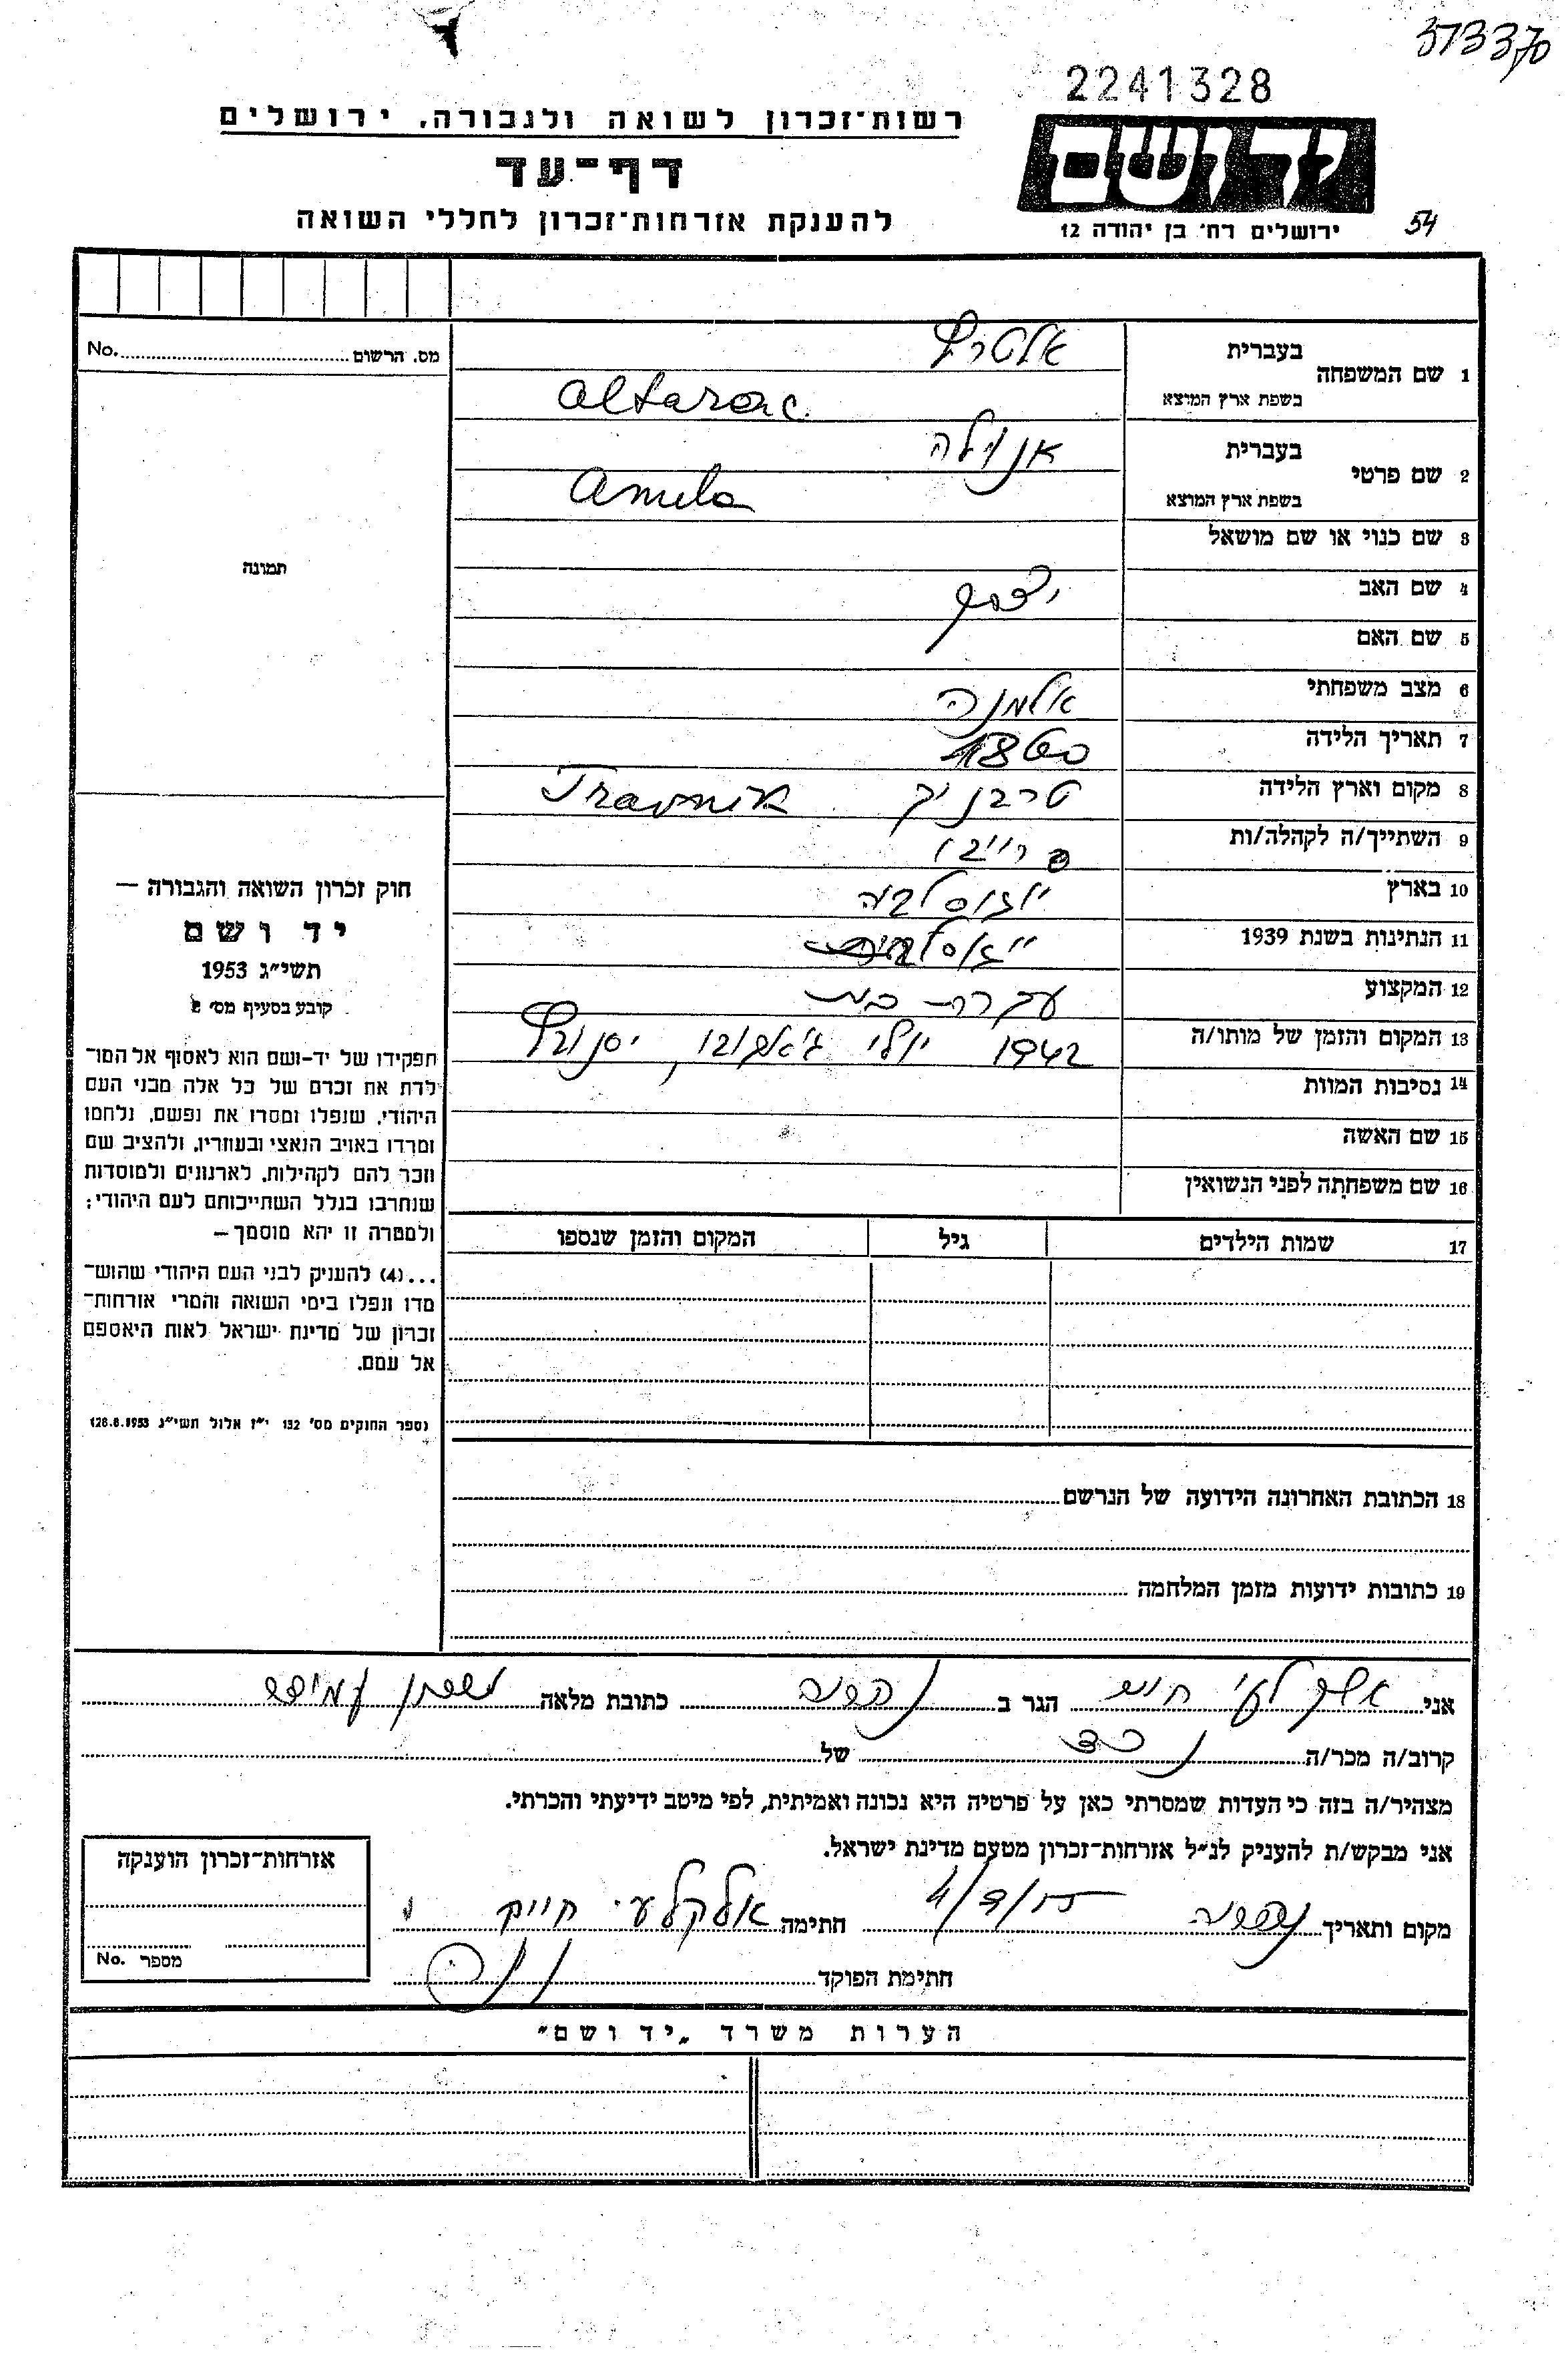 2241328
רשות־זכרון לשואה ולגבורה, ירושלים
יד ושם
דף־עד
להענקת אזרחות־זכרון לחללי השואה
ירושלים רח׳ בן יהודה 12
54
מס. הרשום No.
1 שם המשפחה
בעברית אלטרץ
בשפת ארץ המוצא Altarac
2 שם פרטי
בעברית אנולה
בשפת ארץ המוצא
3 שם כנוי או שם מושאל
תמונה
4 שם האב יוסף
5 שם האם
6 מצב משפחתי אלמנה
7 תאריך הלידה
8 מקום וארץ הלידה טרבניק Travnik
9 השתייך/ה לקהלה/ות
10 בארץ יוגוסלביה
11 הנתינות בשנת 1939
12 המקצוע עקרת בית
13 המקום והזמן של מותו/ה 1942 יולי
14 נסיבות המוות
15 שם האשה
16 שם משפחתה לפני הנשואין
חוק זכרון השואה והגבורה —
יד ושם
תשי״ג 1953
קובע בסעיף מס׳ 2
תפקידו של יד-ושם הוא לאסוף אל המו־
לדת את זכרם של כל אלה מבני העם
היהודי, שנפלו ומסרו את נפשם, נלחמו
ומרדו באויב הנאצי ובעוזריו, ולהציב שם
וזכר להם לקהילות, לארגונים ולמוסדות
שנחרבו בגלל השתייכותם לעם היהודי;
ולמטרה זו יהא מוסמך —
...(4) להעניק לבני העם היהודי שהוש־
מדו ונפלו בימי השואה והמרי אזרחות־
זכרון של מדינת ישראל לאות היאספם
אל עמם.
נספר החוקים מס׳ 132 י״ז אלול תשי״ג 28.8.1953)
17 שמות הילדים גיל המקום והזמן שנספו
18 הכתובת האחרונה הידועה של הנרשם
19 כתובות ידועות מזמן המלחמה
אני אלקלעי חיים הגר ב נהריה כתובת מלאה
קרוב/ה מכר/ה נכד של
מצהיר/ה בזה כי העדות שמסרתי כאן על פרטיה היא נכונה ואמיתית, לפי מיטב ידיעתי והכרתי.
אני מבקש/ת להעניק לנ״ל אזרחות־זכרון מטעם מדינת ישראל.
מקום ותאריך נהריה חתימה אלקלעי חיים
חתימת הפוקד
אזרחות־זכרון הוענקה
מספר No.
הערות משרד „יד ושם״